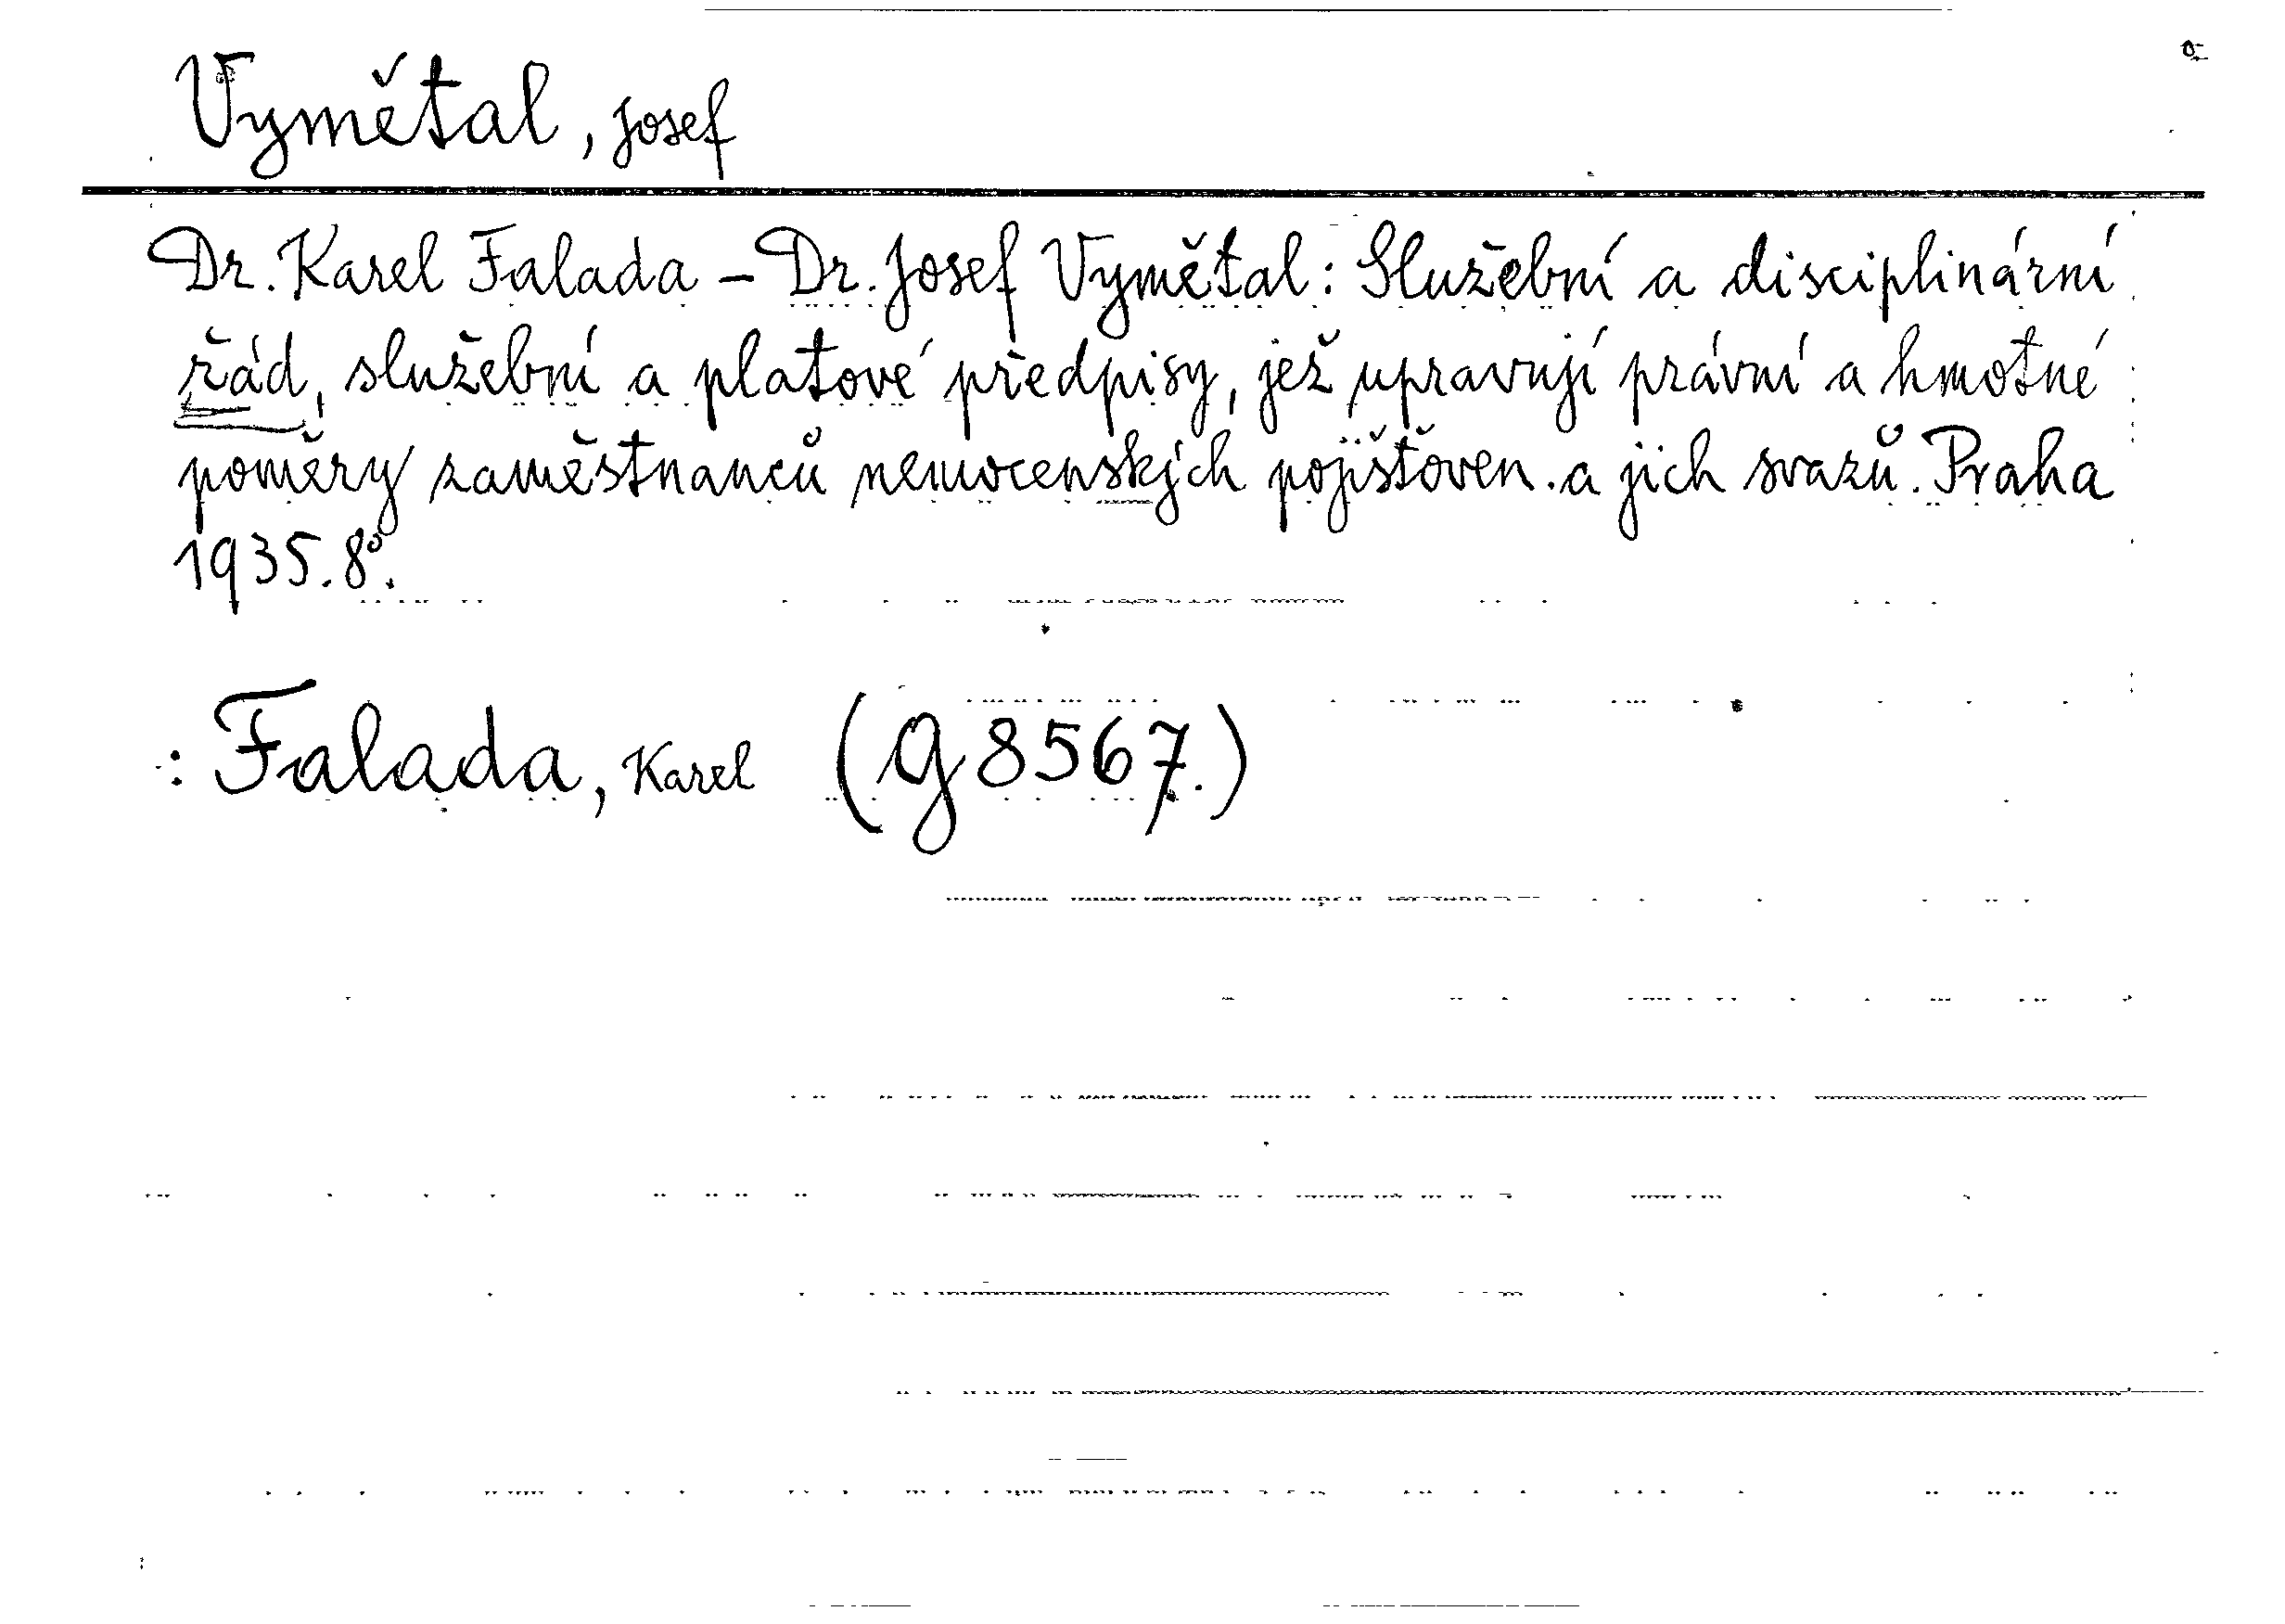 Vymětal, Josef
Dr. Karel Falada – Dr. Josef Vymětal: Služební a disciplinární
řád, služební a platové předpisy, jež upravují právní a hmotné
poměry zaměstnanců nemocenských pojišťoven a jich svazů. Praha
1935. 8°.
: Falada, Karel (G 8567.)